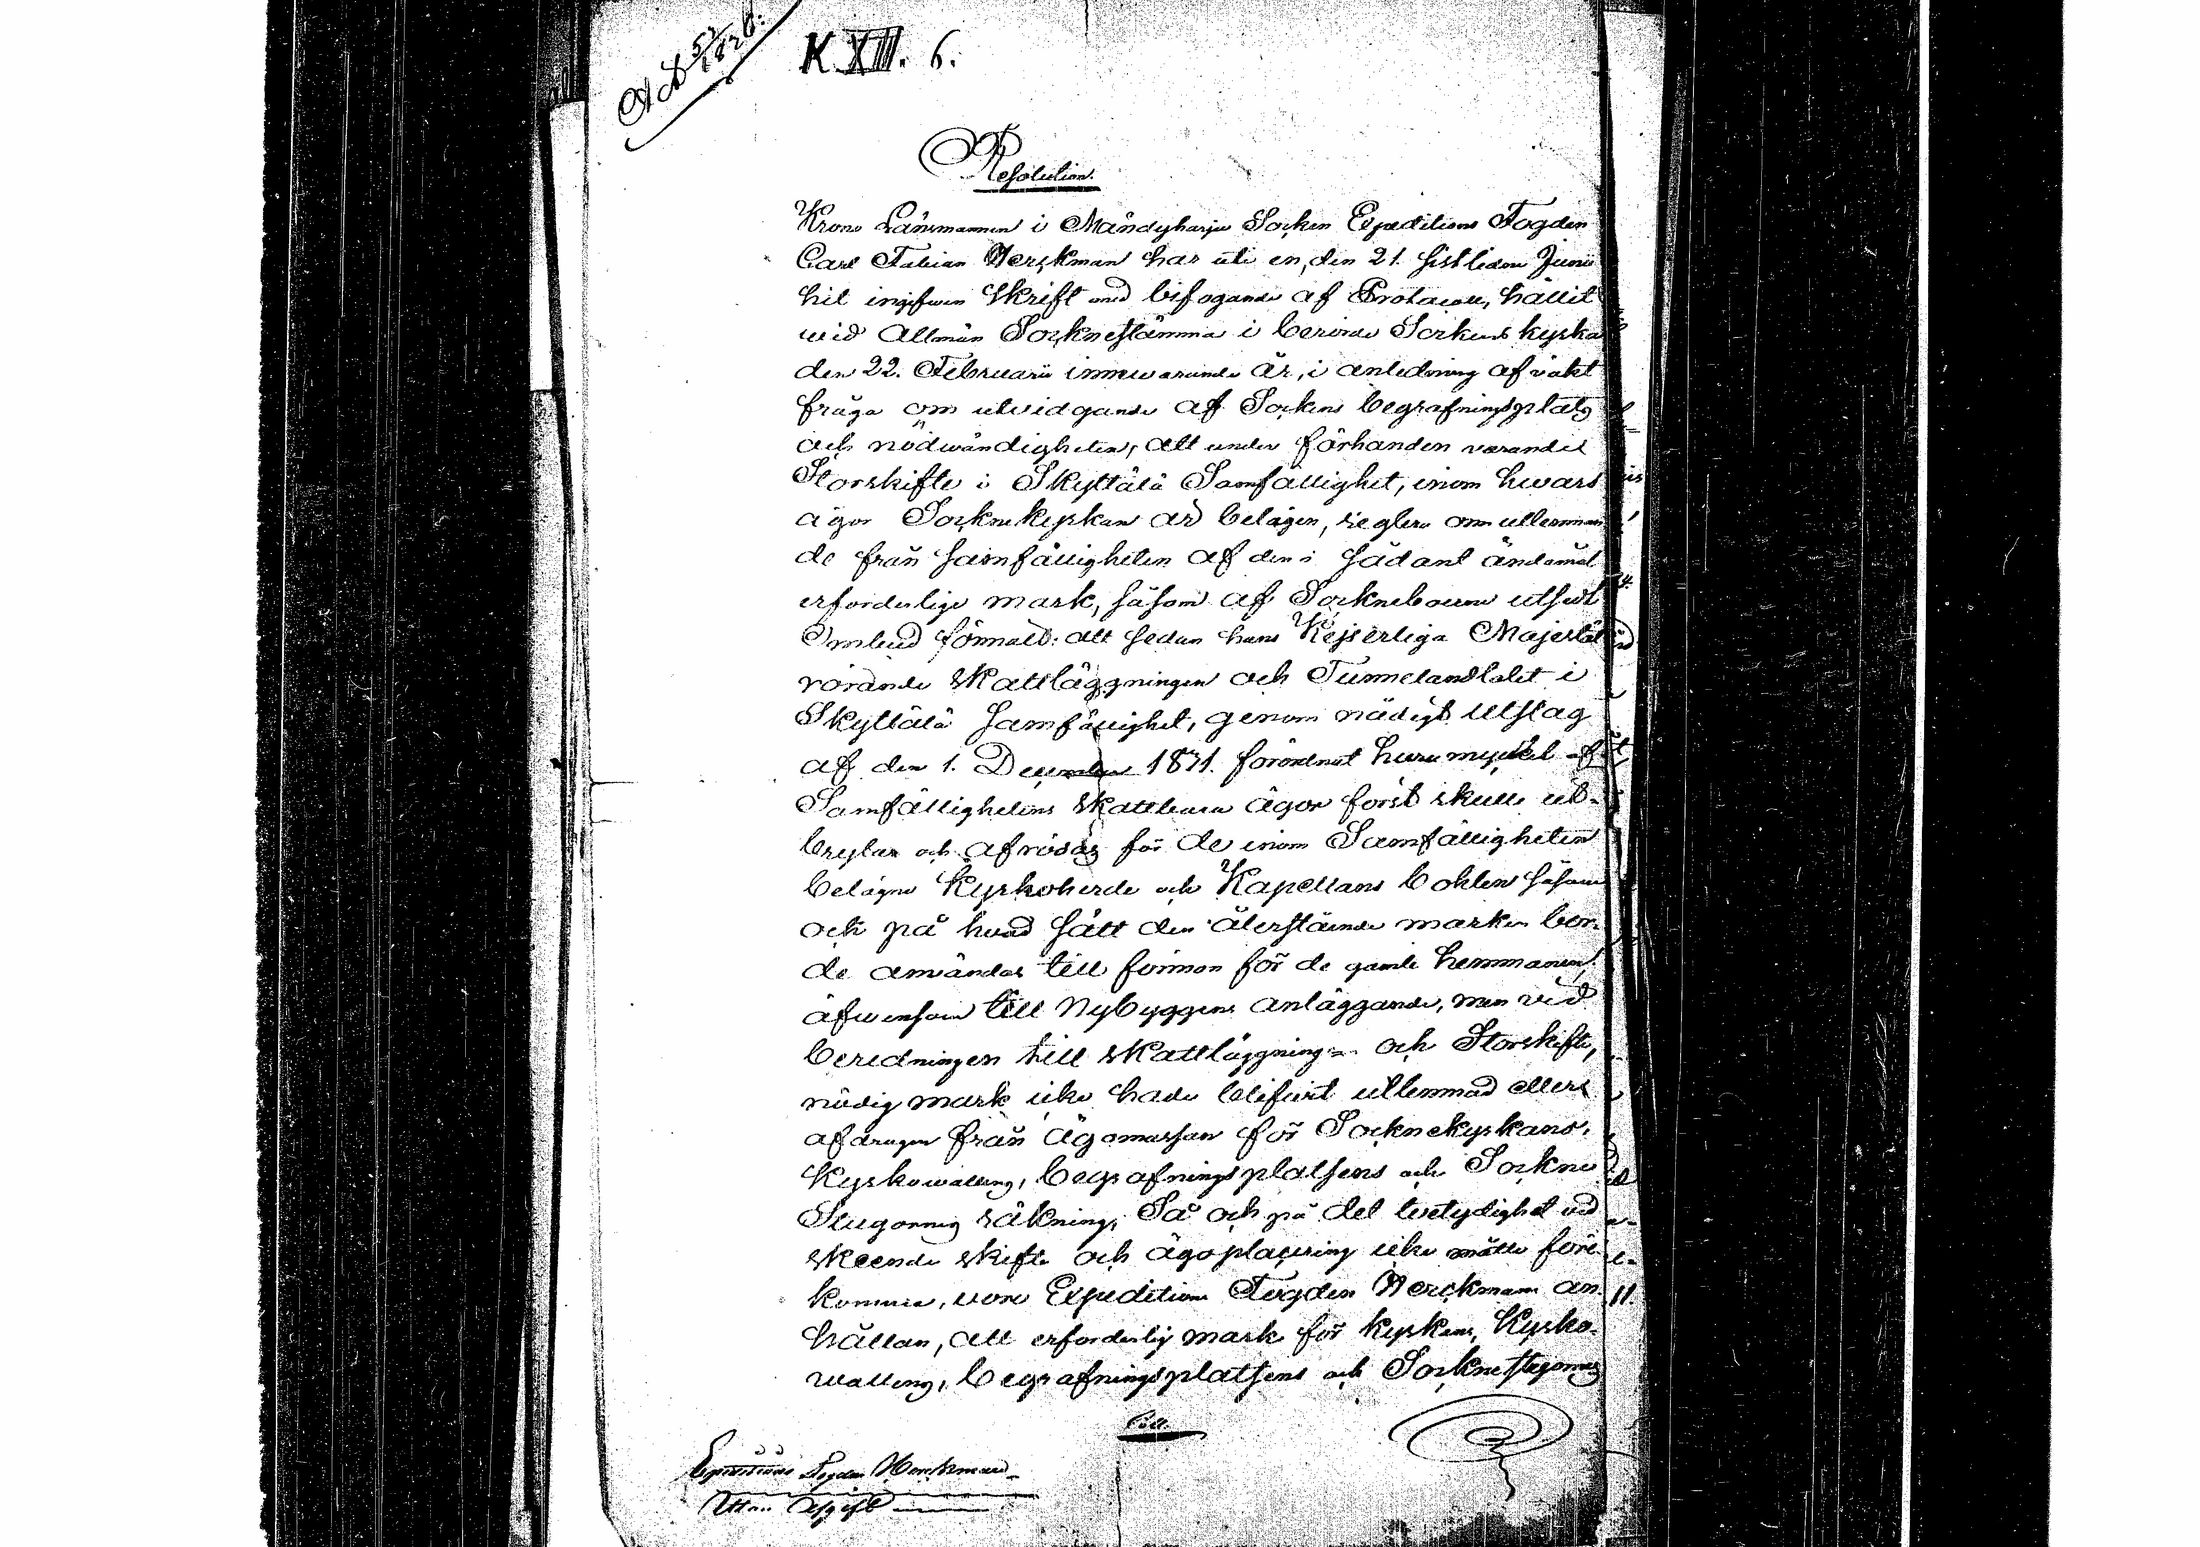 K XIII. 6.
Resolution.
Krono Länsmannen i Mändyharju Socken Expeditions Fogden
Carl Fabian Herckman har uti en, den 21. sistledne Junii
hit ingifwen skrift med bifogande af Protocoll, hållit
wid allmän Socknestämma i berörde Sockens kyrka
den 22. Februarii innewarande år, i anledning af väckt
fråga om utvidgande af Sockens begrafningsplats
och nödwändigheten, att under förhanden varande
Storskifte i Skyttälä Samfällighet, inom hwars
ägor Socknekyrkan är belägen, reglera om utlemnan
de från samfälligheten af den i sådant ändamål
erforderlige mark, såsom af Socknebouerne utsedt
Ombud förmält: att sedan hans Kejserliga Majestät
rörande skattläggningen och Tunnelandtalet i
Skyttälä samfällighet, genom nådigt Utslag
af den 1. December 1871. förordnat huru mycket af
Samfällighetens skattbara ägor först skulle ut-
brytas och afrösas för de inom Samfälligheten
belägne Kyrkoherde och Kapellans bohlen såsom
och på hvad sätt den återstående marken bor-
de användas till förmon för de gamle hemmanen
äfwensom till Nybyggens anläggande, men vid
beredningen till skattläggning och Storskifte,
nödig mark icke hade blifwit utlemnad eller
afdragen från ägomassan för Socknekyrkans,
Kyrkowallens, begrafningsplatsens och Sockne
Stugornes räkning, Så och på det tvetydighet vid
skeende skifte och ägoplacering icke måtte före-
komma, vore Expeditions Fogden Herckmans an-
hållan, att erforderlig mark för kyrkans, Kyrko-
wallens, begrafningsplatsens och Socknestugornes
Expeditions Fogden Herckman
Utan Afgift